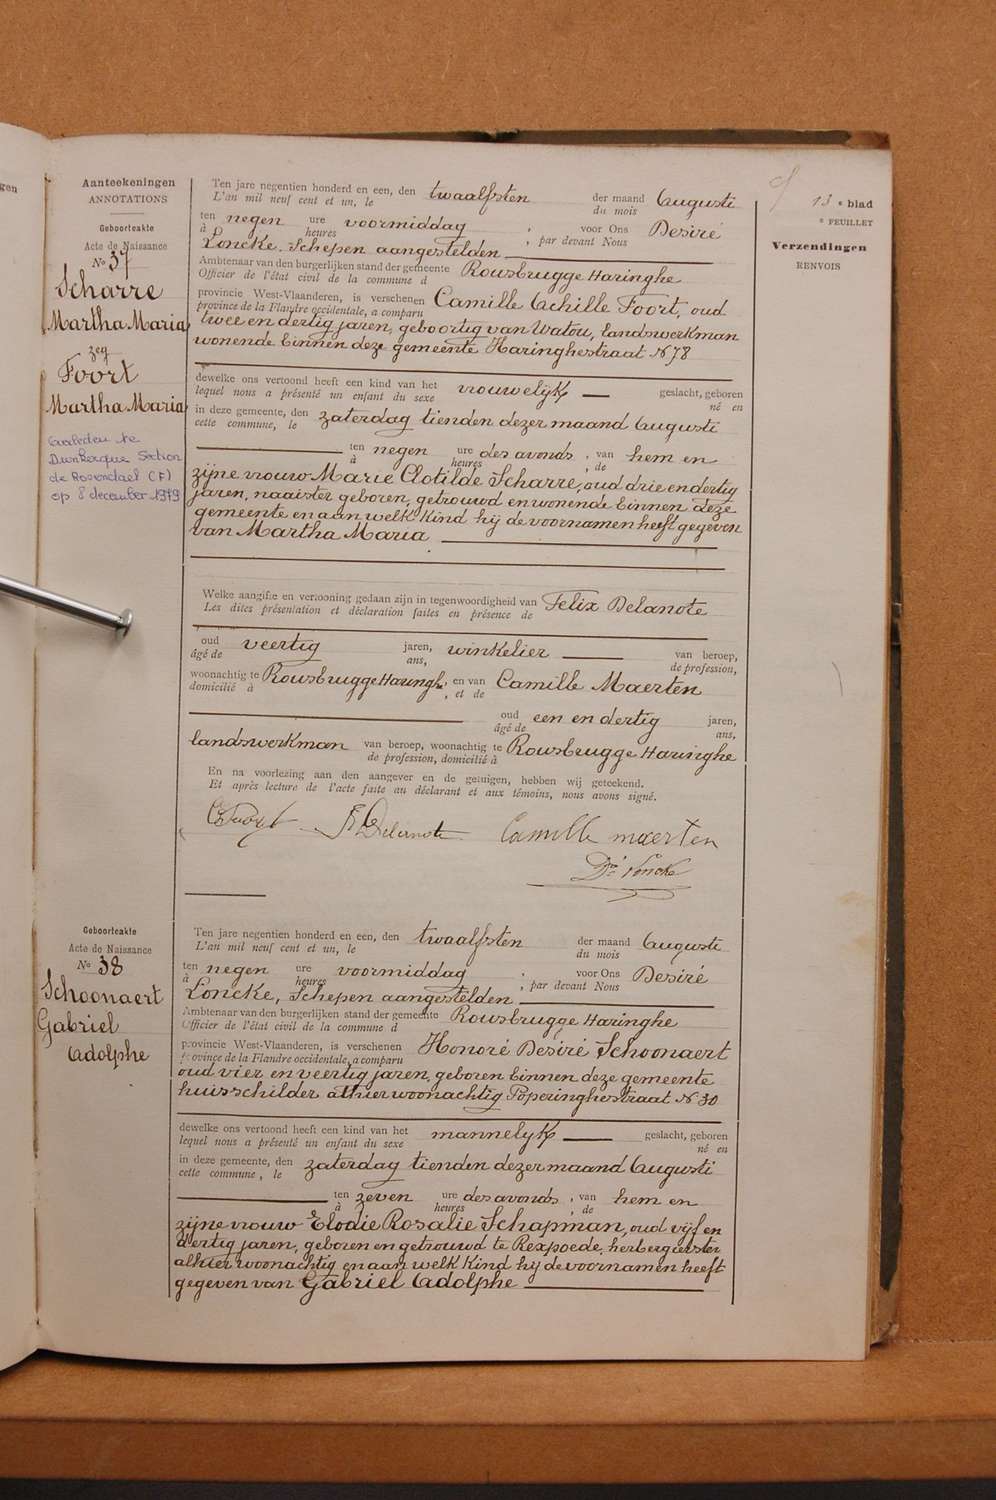 Aanteekeningen
ANNOTATIONS
Geboorteakte
Acte de Naissance
No 37
Scharre
Martha Maria
zeg
Foort
Martha Maria
Overleden te
Dunkerque Section
de Rosendael (F)
op 8 december 1979
Ten jare negentien honderd en een, den twaalfsten der maand Augusti
L'an mil neuf cent et un, le du mois
ten negen ure voormiddag , voor Ons Desiré
à heures , par devant Nous
Loncke, Schepen aangestelden
Ambtenaar van den burgerlijken stand der gemeente Rousbrugge Haringhe
Officier de l'état civil de la commune d
provincie West-Vlaanderen, is verschenen Camille Achille Foort, oud
province de la Flandre occidentale, a comparu
twee en dertig jaren, geboortig van Watou, landswerkman
wonende binnen deze gemeente Haringhestraat No 78
dewelke ons vertoond heeft een kind van het vrouwelijk geslacht, geboren
lequel nous a présenté un enfant du sexe né en
in deze gemeente, den zaterdag tienden dezer maand Augusti
cette commune, le
ten negen ure des avonds , van hem en
à heures , de
zijne vrouw Marie Clotilde Scharre, oud drie en dertig
jaren, naaister geboren, getrouwd en wonende binnen deze
gemeente en aan welk kind hij de voornamen heeft gegeven
van Martha Maria
Welke aangifte en vertooning gedaan zijn in tegenwoordigheid van Felix Delanote
Les dites présentation et déclaration faites en présence de
oud veertig jaren, winkelier van beroep,
âgé de ans, de profession,
woonachtig te Rousbrugge Haringhe , en van Camille Maerten
domicilié à , et de
oud een en dertig jaren,
âgé de ans,
landswerkman van beroep, woonachtig te Rousbrugge Haringhe
de profession, domicilié à
En na voorlezing aan den aangever en de getuigen, hebben wij geteekend.
Et après lecture de l'acte faite au déclarant et aux témoins, nous avons signé.
Delanote Camille maerten
Dé Loncke
13 e blad
e FEUILLET
Verzendingen
RENVOIS
Geboorteakte
Acte de Naissance
No 38
Schoonaert
Gabriel
Adolphe
Ten jare negentien honderd en een, den twaalfsten der maand Augusti
L'an mil neuf cent et un, le du mois
ten negen ure voormiddag , voor Ons Desiré
à heures , par devant Nous
Loncke, Schepen aangestelden
Ambtenaar van den burgerlijken stand der gemeente Rousbrugge Haringhe
Officier de l'état civil de la commune d
provincie West-Vlaanderen, is verschenen Honoré Desiré Schoonaert
province de la Flandre occidentale, a comparu
oud vier en veertig jaren, geboren binnen deze gemeente
huisschilder alhier woonachtig Poperinghestraat No 30
dewelke ons vertoond heeft een kind van het mannelijk geslacht, geboren
lequel nous a présenté un enfant du sexe né en
in deze gemeente, den zaterdag tienden dezer maand Augusti
cette commune, le
ten zeven ure des avonds , van hem en
à heures , de
zijne vrouw Elodie Rosalie Schapman, oud vijf en
dertig jaren, geboren en getrouwd te Rexpoede, herbergierster
alhier woonachtig en aan welk kind hij de voornamen heeft
gegeven van Gabriel Adolphe